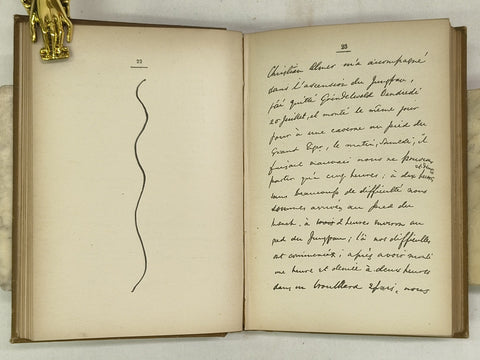 22
23
Christian Almer m'a accompagné
dans l'ascension du Jungfrau,
j'ai quitté Grindelwald Vendredi
20 Juillet, et monté le même jour
pour à une caserne au pied du
Grand Eger, le matin, Samedi, il
faisait mauvais nous ne
partir qu'à cinq heures; à dix heures
sans beaucoup de difficulté nous
sommes arrivés au pied du
à trois heures environ au
pied du Jungfrau, là nos difficultés
ont commencé; après avoir monté
une heure et demie à deux heures
dans un brouillard, nous